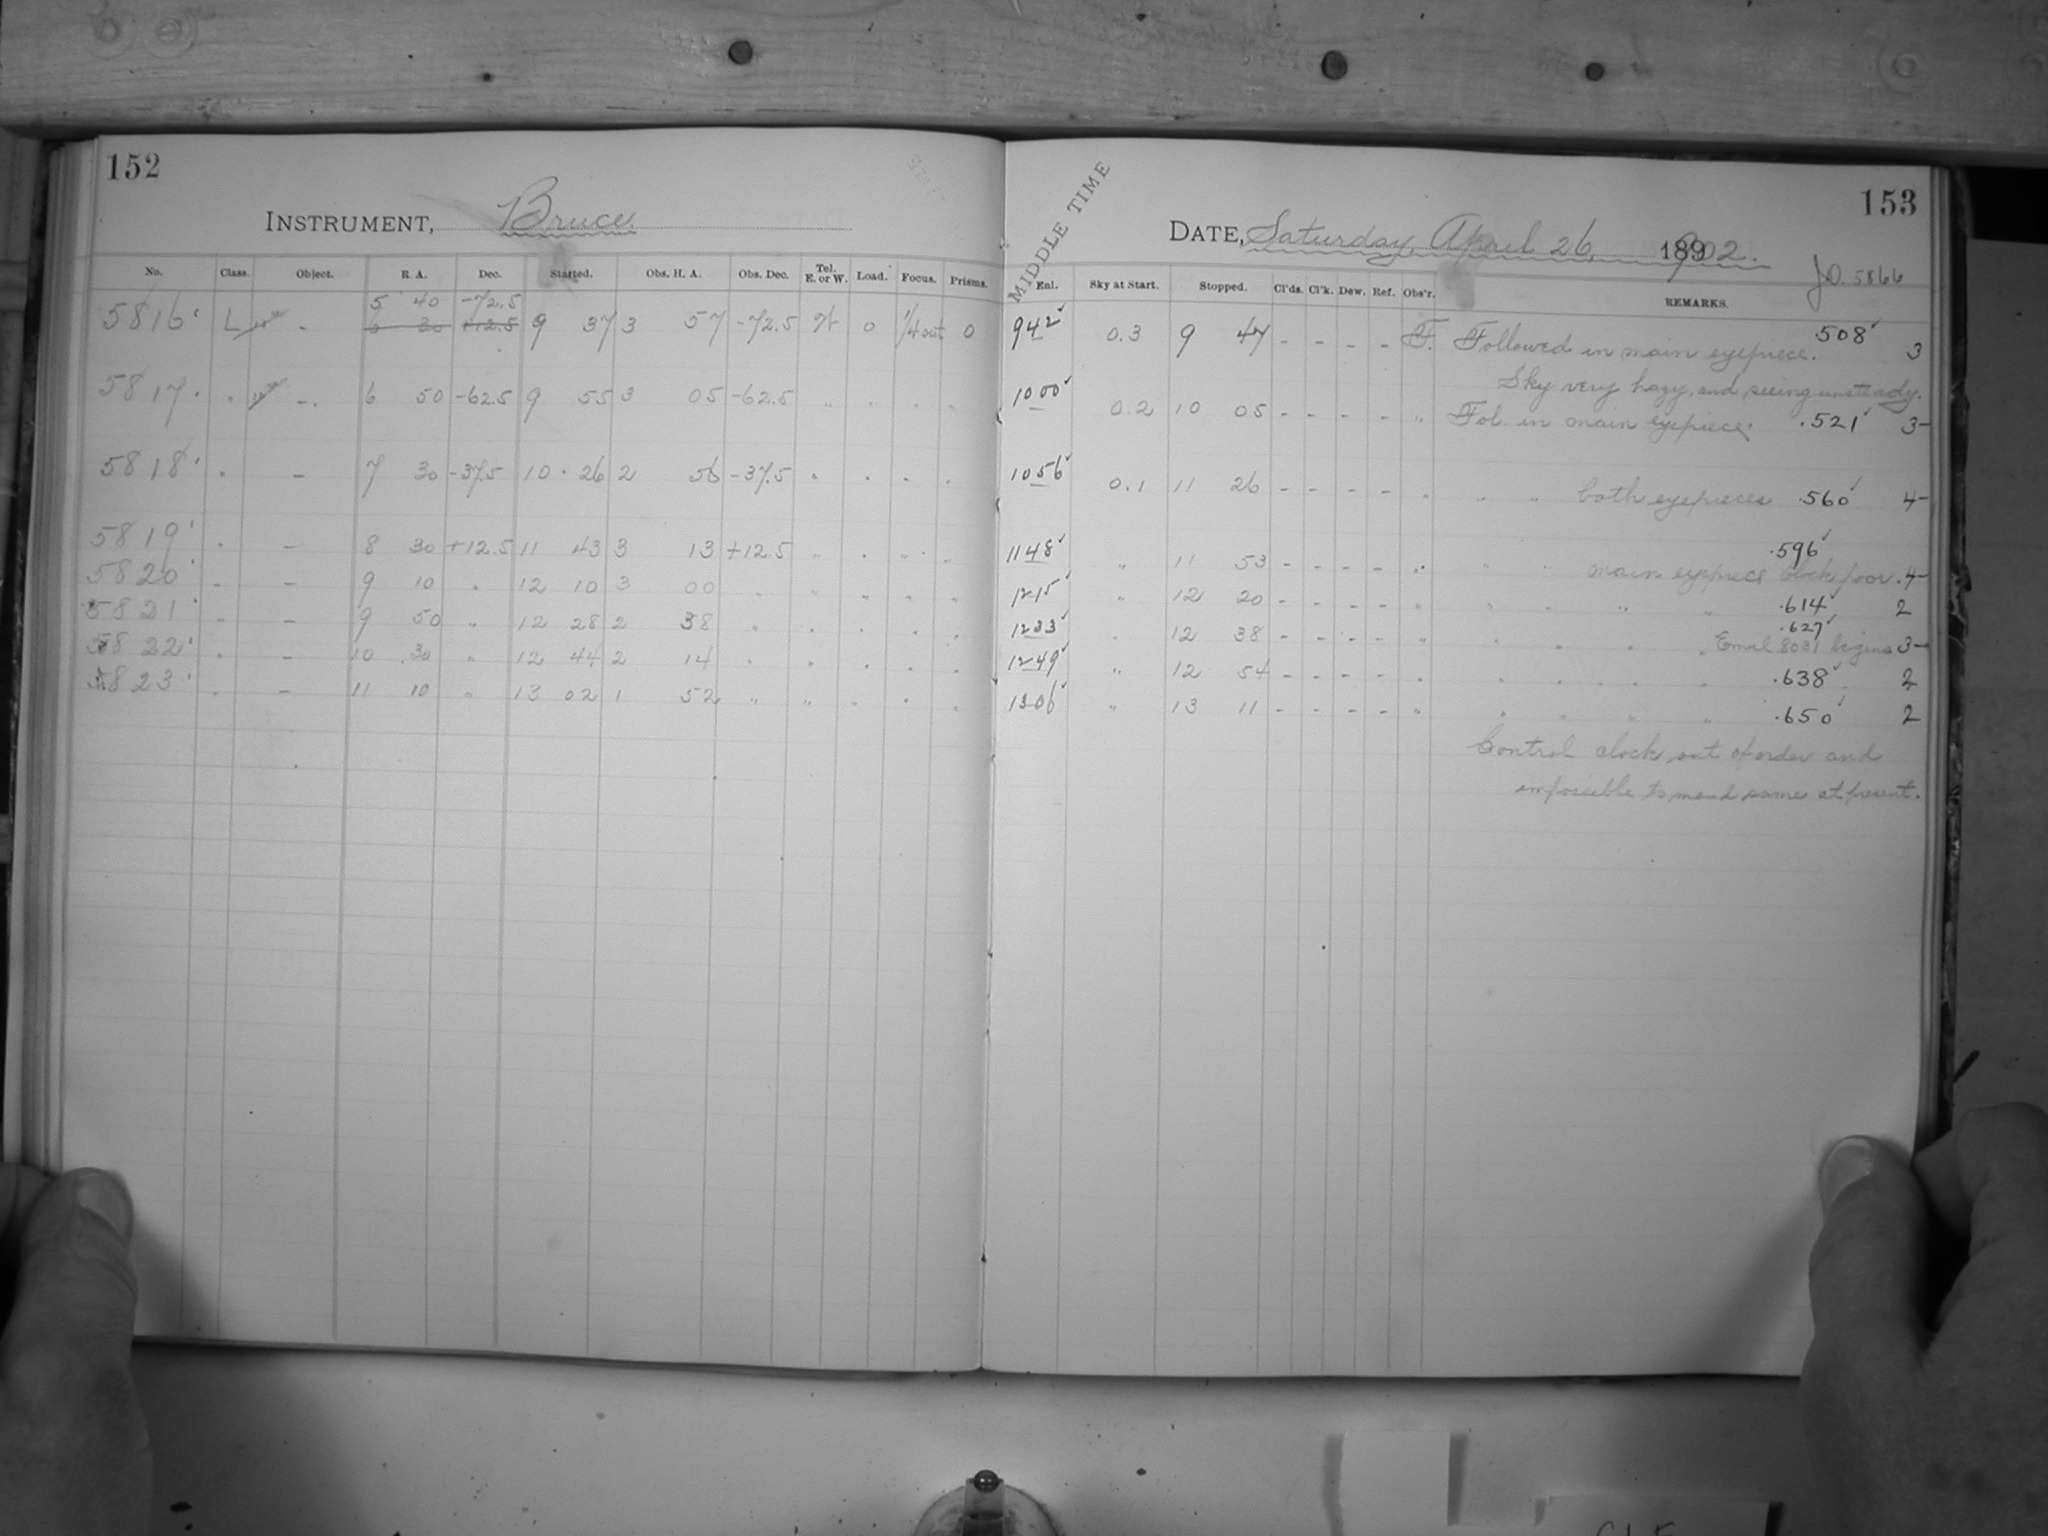 152
INSTRUMENT, Bruce.
No. Class. Object. R. A. Dec. Started. Obs. H. A. Obs. Dec. Tel. E. or W. Load. Focus. Prisms.
5 40 -72.5
5816 L - 6 30 +12.5 9 37 3 57 -72.5 W 0 1/4 out 0
5817 " - 6 50 -62.5 9 55 3 05 -62.5 " " " "
5818 " - 7 30 -37.5 10 26 2 56 -37.5 " " " "
5819 " - 8 30 +12.5 11 43 3 13 +12.5 " " " "
5820 " - 9 10 " 12 10 3 00 " " " " "
5821 " - 9 50 " 12 28 2 38 " " " " "
5822 " - 10 30 " 12 44 2 14 " " " " "
5823 " - 11 10 " 13 02 1 52 " " " " "
153
MIDDLE TIME
DATE, Saturday, April 26, 1902.
J.D. 5866
Enl. Sky at Start. Stopped. Cl'ds. Cl'k. Dew. Ref. Obs'r. REMARKS.
942 0.3 9 47 - - - - F. Followed in main eyepiece. .508 3
Sky very hazy, and seeing unsteady.
1000 0.2 10 05 - - - - " Fol. in main eyepiece. .521 3-
1056 0.1 11 26 - - - - " " " both eyepieces .560 4-
1148 " 11 53 - - - - " " " main eyepiece clock poor. .596 4-
1215 " 12 20 - - - - " " " " " .614 2
1233 " 12 38 - - - - " " " " Emul 8031 begins .627 3-
1249 " 12 54 - - - - " " " " " .638 2
1306 " 13 11 - - - - " " " " " .650 2
Control clock out of order and
impossible to mend same at present.